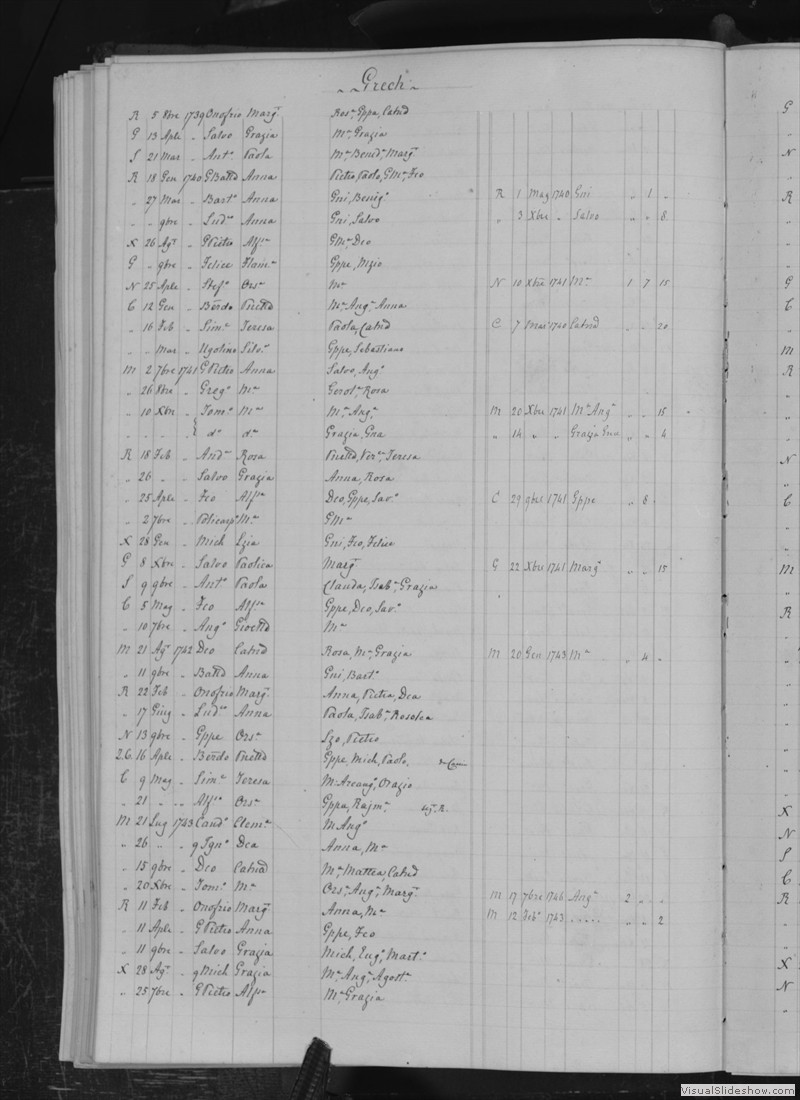 Grech
R 5 8bre 1739 Onofrio Marga Rosa, Gppa, Catnd
G 13 Aple " Salvo Grazia Ma, Grazia
S 21 Mar " Anto Paola Ma, Bendta, Marga
R 18 Gen 1740 GBatta Anna Pietro, Paolo, GMa, Fco
" 27 Mar " Barto Anna Gni, Benigo R 1 Mag 1740 Gni " 1 "
" " 9bre " Ludco Anna Gni, Salvo " 3 Xbre " Salvo " " 8
X 26 Agt " GPietro Alfsa GMa, Dco
G " 9bre " Felice Flama Gppe, Nzio
N 25 Aple " Stefo Orsa Ma N 10 Xbre 1741 Ma 1 7 15
C 12 Gen " Berdo Ma, Anga, Anna
" 16 Feb " Sime Teresa Paola, Catnd C 7 Mar 1740 Catnd " " 20
" " Mar " Ugolino Silva Gppe, Sebastiano
M 2 7bre 1741 GPietro Anna Salvo, Ango
" 26 8bre " Grego Ma Gerola, Rosa
" 10 Xbre " Toma Ma Ma, Anga M 20 Xbre 1741 Ma Anga " " 15
" " " " { do da Grazia, Gna " 14 " " Grazia Gna " " 4
R 18 Feb " Anda Rosa Vera, Teresa
" 26 " " Salvo Grazia Anna, Rosa
" 25 Aple " Fco Alfsa Dco, Gppe, Savo C 29 9bre 1741 Gppe " 8
" 2 7bre " Policarpo Ma GMa
X 28 Gen " Mich Lzia Gni, Fco, Felice
G 8 Xbre " Salvo Paolica Marga G 22 Xbre 1741 Marga " " 15
S 9 9bre " Anto Paola Clauda, Isaba, Grazia
C 5 Mag " Fco Alfsa Gppe, Dco, Savo
" 10 7bre " Ango Ma
M 21 Agt 1742 Dco Catnd Rosa, Ma, Grazia M 20 Gen 1743 Ma " 4 "
" 11 9bre " Batta Anna Gni, Barto
R 22 Feb " Onofrio Marga Anna, Pietra, Dca
" 17 Giug " Ludco Anna Paola, Isaba, Rosolea
N 13 9bre " Gppe Orsa Lzo, Pietro
2.C. 16 Aple " Berdo Gppe, Mich, Paolo,
C 9 Mag " Sime Teresa M. Arcanga, Orazio
" 21 " " Alfso Orsa Gppa, Rajma
M 21 Lug 1743 Cando Clema M Anga
" 26 " " g Igno Dca Anna, Ma
" 15 9bre " Dco Catnd Ma, Mattea, Catnd
" 20 Xbre " Toma Ma Orsa, Anga, Marga M 17 7bre 1746 Anga 2 " "
R 11 Feb " Onofrio Marga Anna, Ma M 12 Feb 1743 ..... " " 2
" 11 Aple " GPietro Anna Gppe, Fco
" 11 9bre " Salvo Grazia Mich, Euga, Marta
X 28 Agt " gMich Grazia Ma, Anga, Agosta
" 25 7bre " GPietro Alfsa Ma, Grazia
VisualSlideshow.com